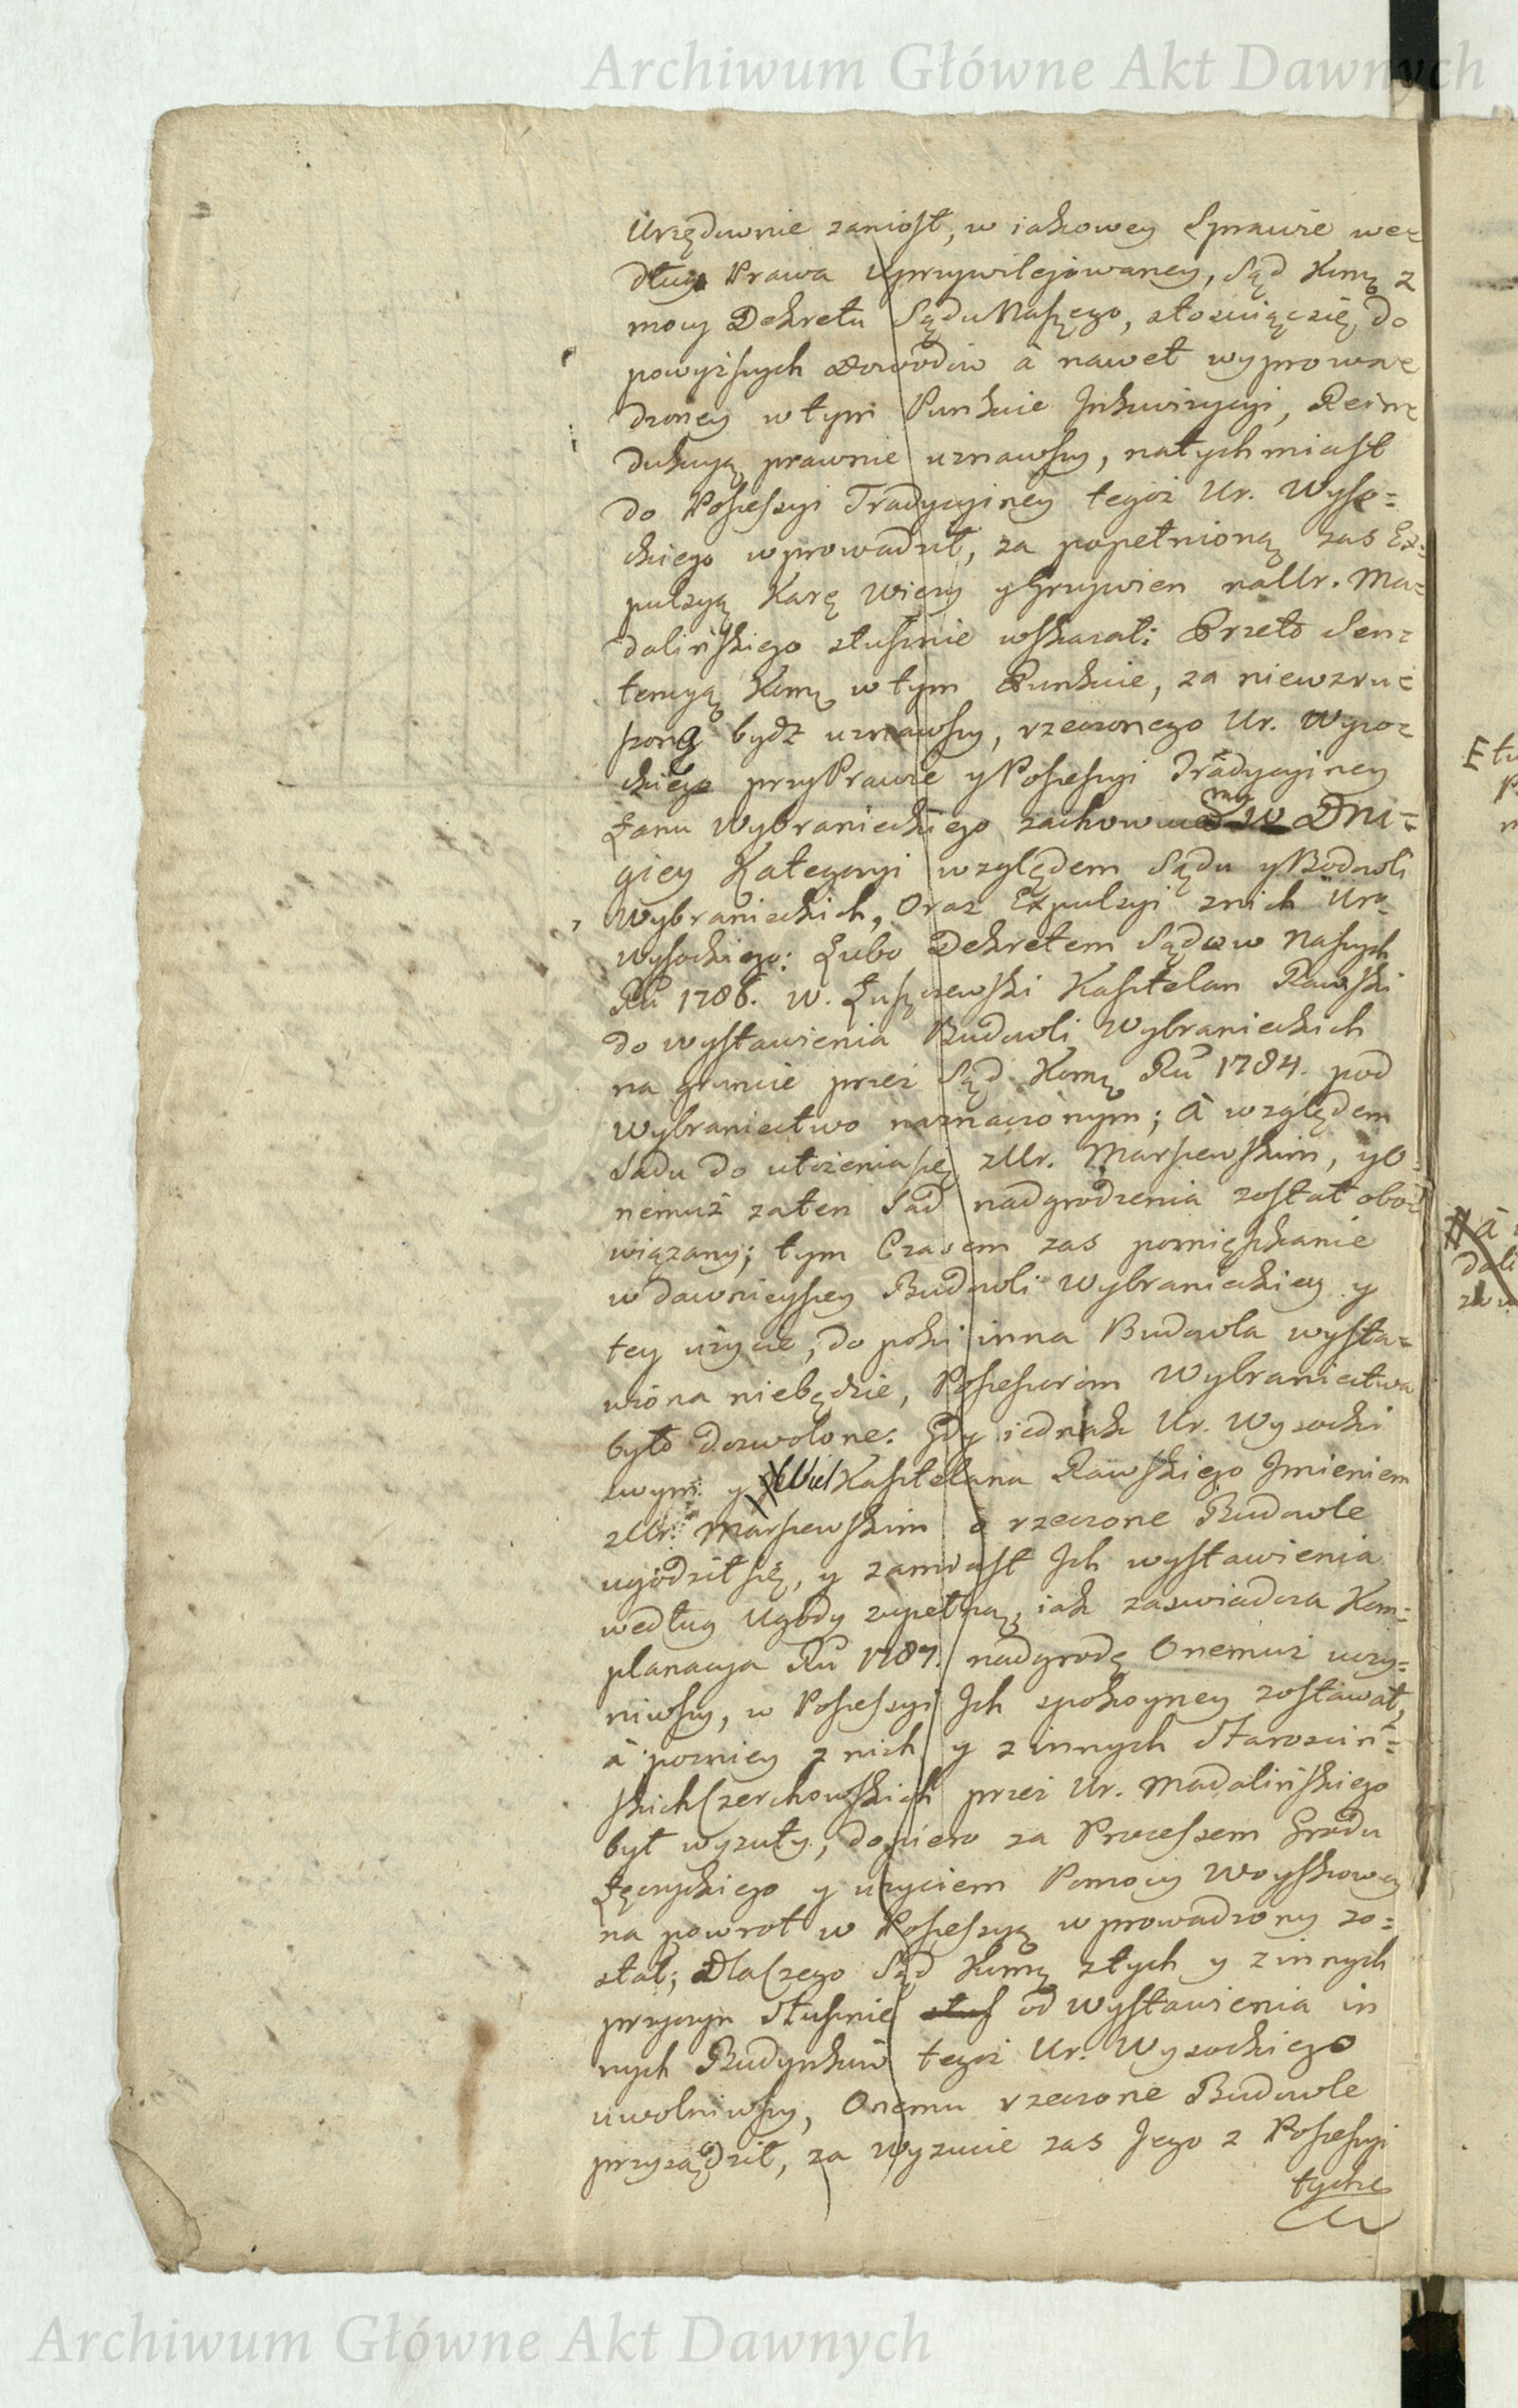 Archiwum Główne Akt Dawnych
Urzędownie zaniosł, w iakowey Sprawie we=
dług Prawa uprzywilejowaney, Sąd Komȩ z
mocy Dekretu Sądu Naszego, stosuiąc się do
powyższych Dowodow à nawet wyprowa=
dzoney w tym Punkcie Inkwizycyi, Rein=
dukcyą prawnie uznawszy, natychmiast
do Possessyi Tradycyiney tegoż Ur. Wyso=
ckiego wprowadził, za popełnioną zas Ex=
pulsyą Karę Wiezy y Grzywien na Ur. Ma=
dalińskiego słusznie wskazał: Przeto Sen=
tencyą Komȩ w tym Punkcie, za niewzru=
szoną bydź uznawszy, rzeczonego Ur. Wyso=
ckiego przy Prawie y Possessyi Tradycyiney
Łanu Wybranieckiego zachowuemy w Dru=
giey Kategoryi względem Sądu y Bodowli
Wybranieckich, Oraz Expulsyi znich Uro
Wysockiego: Lubo Dekretem Sądow Naszych
Ru 1786. W. Łuszczewski Kasztelan Rawski
do wystawienia Budowli Wybranieckich
na gruncie przez Sąd Komȩ Ru 1784. pod
Wybraniectwo naznaczonym; à względem
Sadu do ułożenia się z Ur. Marszewskim, y O=
nemuż za ten Sad nadgrodzenia został obo=
wiązany; tym Czasem zas pomięszkanie
w dawnieyszey Budowli Wybranieckiey y
tey użycie, do poki inna Budowla wysta=
wiona niebędzie, Possessorom Wybraniectwa
było dozwolone: Gdy iednak Ur. Wysocki
swym y Wiel Kasztelana Rawskiego Imieniem
z Ur. Marszewskim o rzeczone Budowle
ugodził się, y zamiast Ich wystawienia
według Ugody zupełną, iak zaswiadcza Kom=
planacya Ru 1787. nadgrodę Onemuż uczy=
niwszy, w Possessyi Ich spokoyney zostawał,
à pozniey z nich y z innych Starościń=
skich Czerchowskich przez Ur. Madalińskiego
był wyzuty, dopiero za Processem Grodu
Łęczyckiego y użyciem Pomocy Woyskowey
na powrot w Possessyą wprowadzony zo=
stał; Dla Czego Sąd Komȩ z tych y z innych
przyczyn Słusznie od wystawienia in
nych Budynków tegoż Ur. Wysockiego
uwolniwszy, Onemu rzeczone Budowle
przysądził, za wyzucie zas Jego z Possessyi
tychże
Archiwum Główne Akt Dawnych